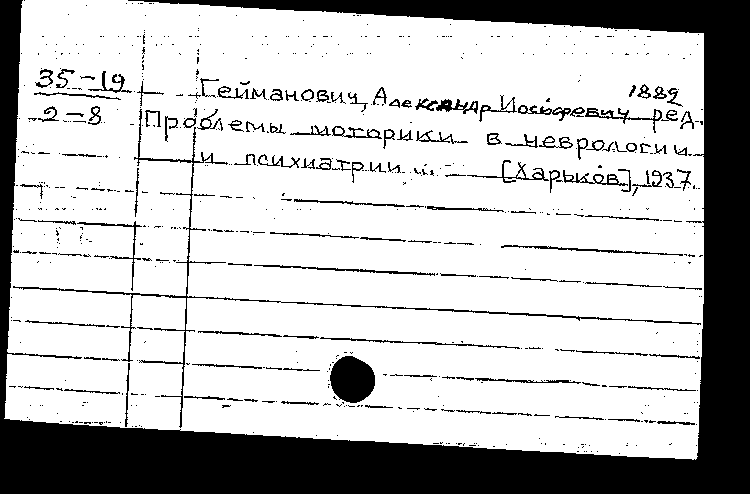 1882
35-19 Гейманович, Александр Иосифович ред.
2-8 Проблемы моторики в неврологии
и психиатрии ... [Харьков], 1937.